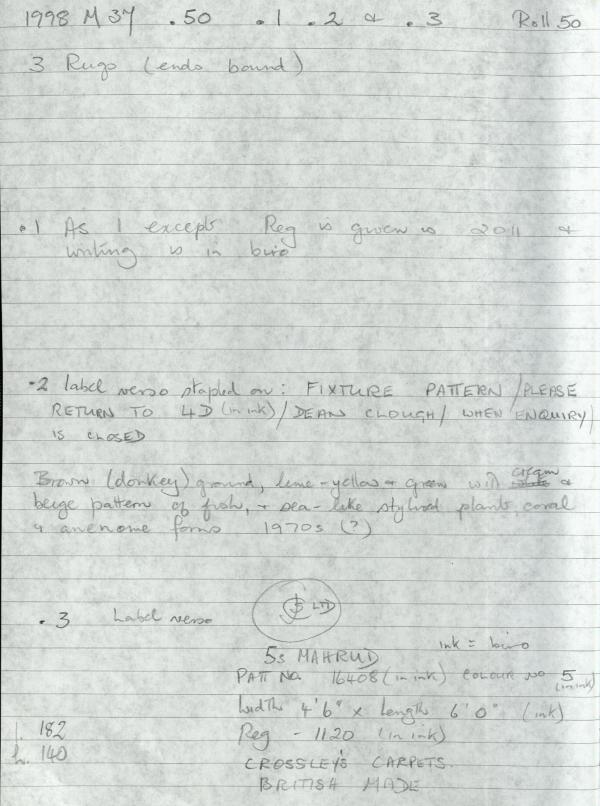 1998 M 37 .50 .1 .2 & .3 Roll 50
3 Rugs (ends bound)
.1 As 1 except Reg is given is 2011 &
writing is in biro
.2 label verso stapled on: FIXTURE PATTERN / PLEASE
RETURN TO 4D (in ink) / DEAN CLOUGH / WHEN ENQUIRY /
IS CLOSED
Brown (donkey) ground, lime-yellow & green with cream &
beige pattern of fish, & sea-like stylised plants, coral
& anenome forms 1970s (?)
.3 Label verso
LTD
ink = biro
5s MAHRUD
PATT No. 16408 (in ink) COLOUR NO 5 (in ink)
Width 4'6" x Length 6'0" (ink)
l. 182 Reg - 1120 (in ink)
h. 140 CROSSLEY'S CARPETS.
BRITISH MADE